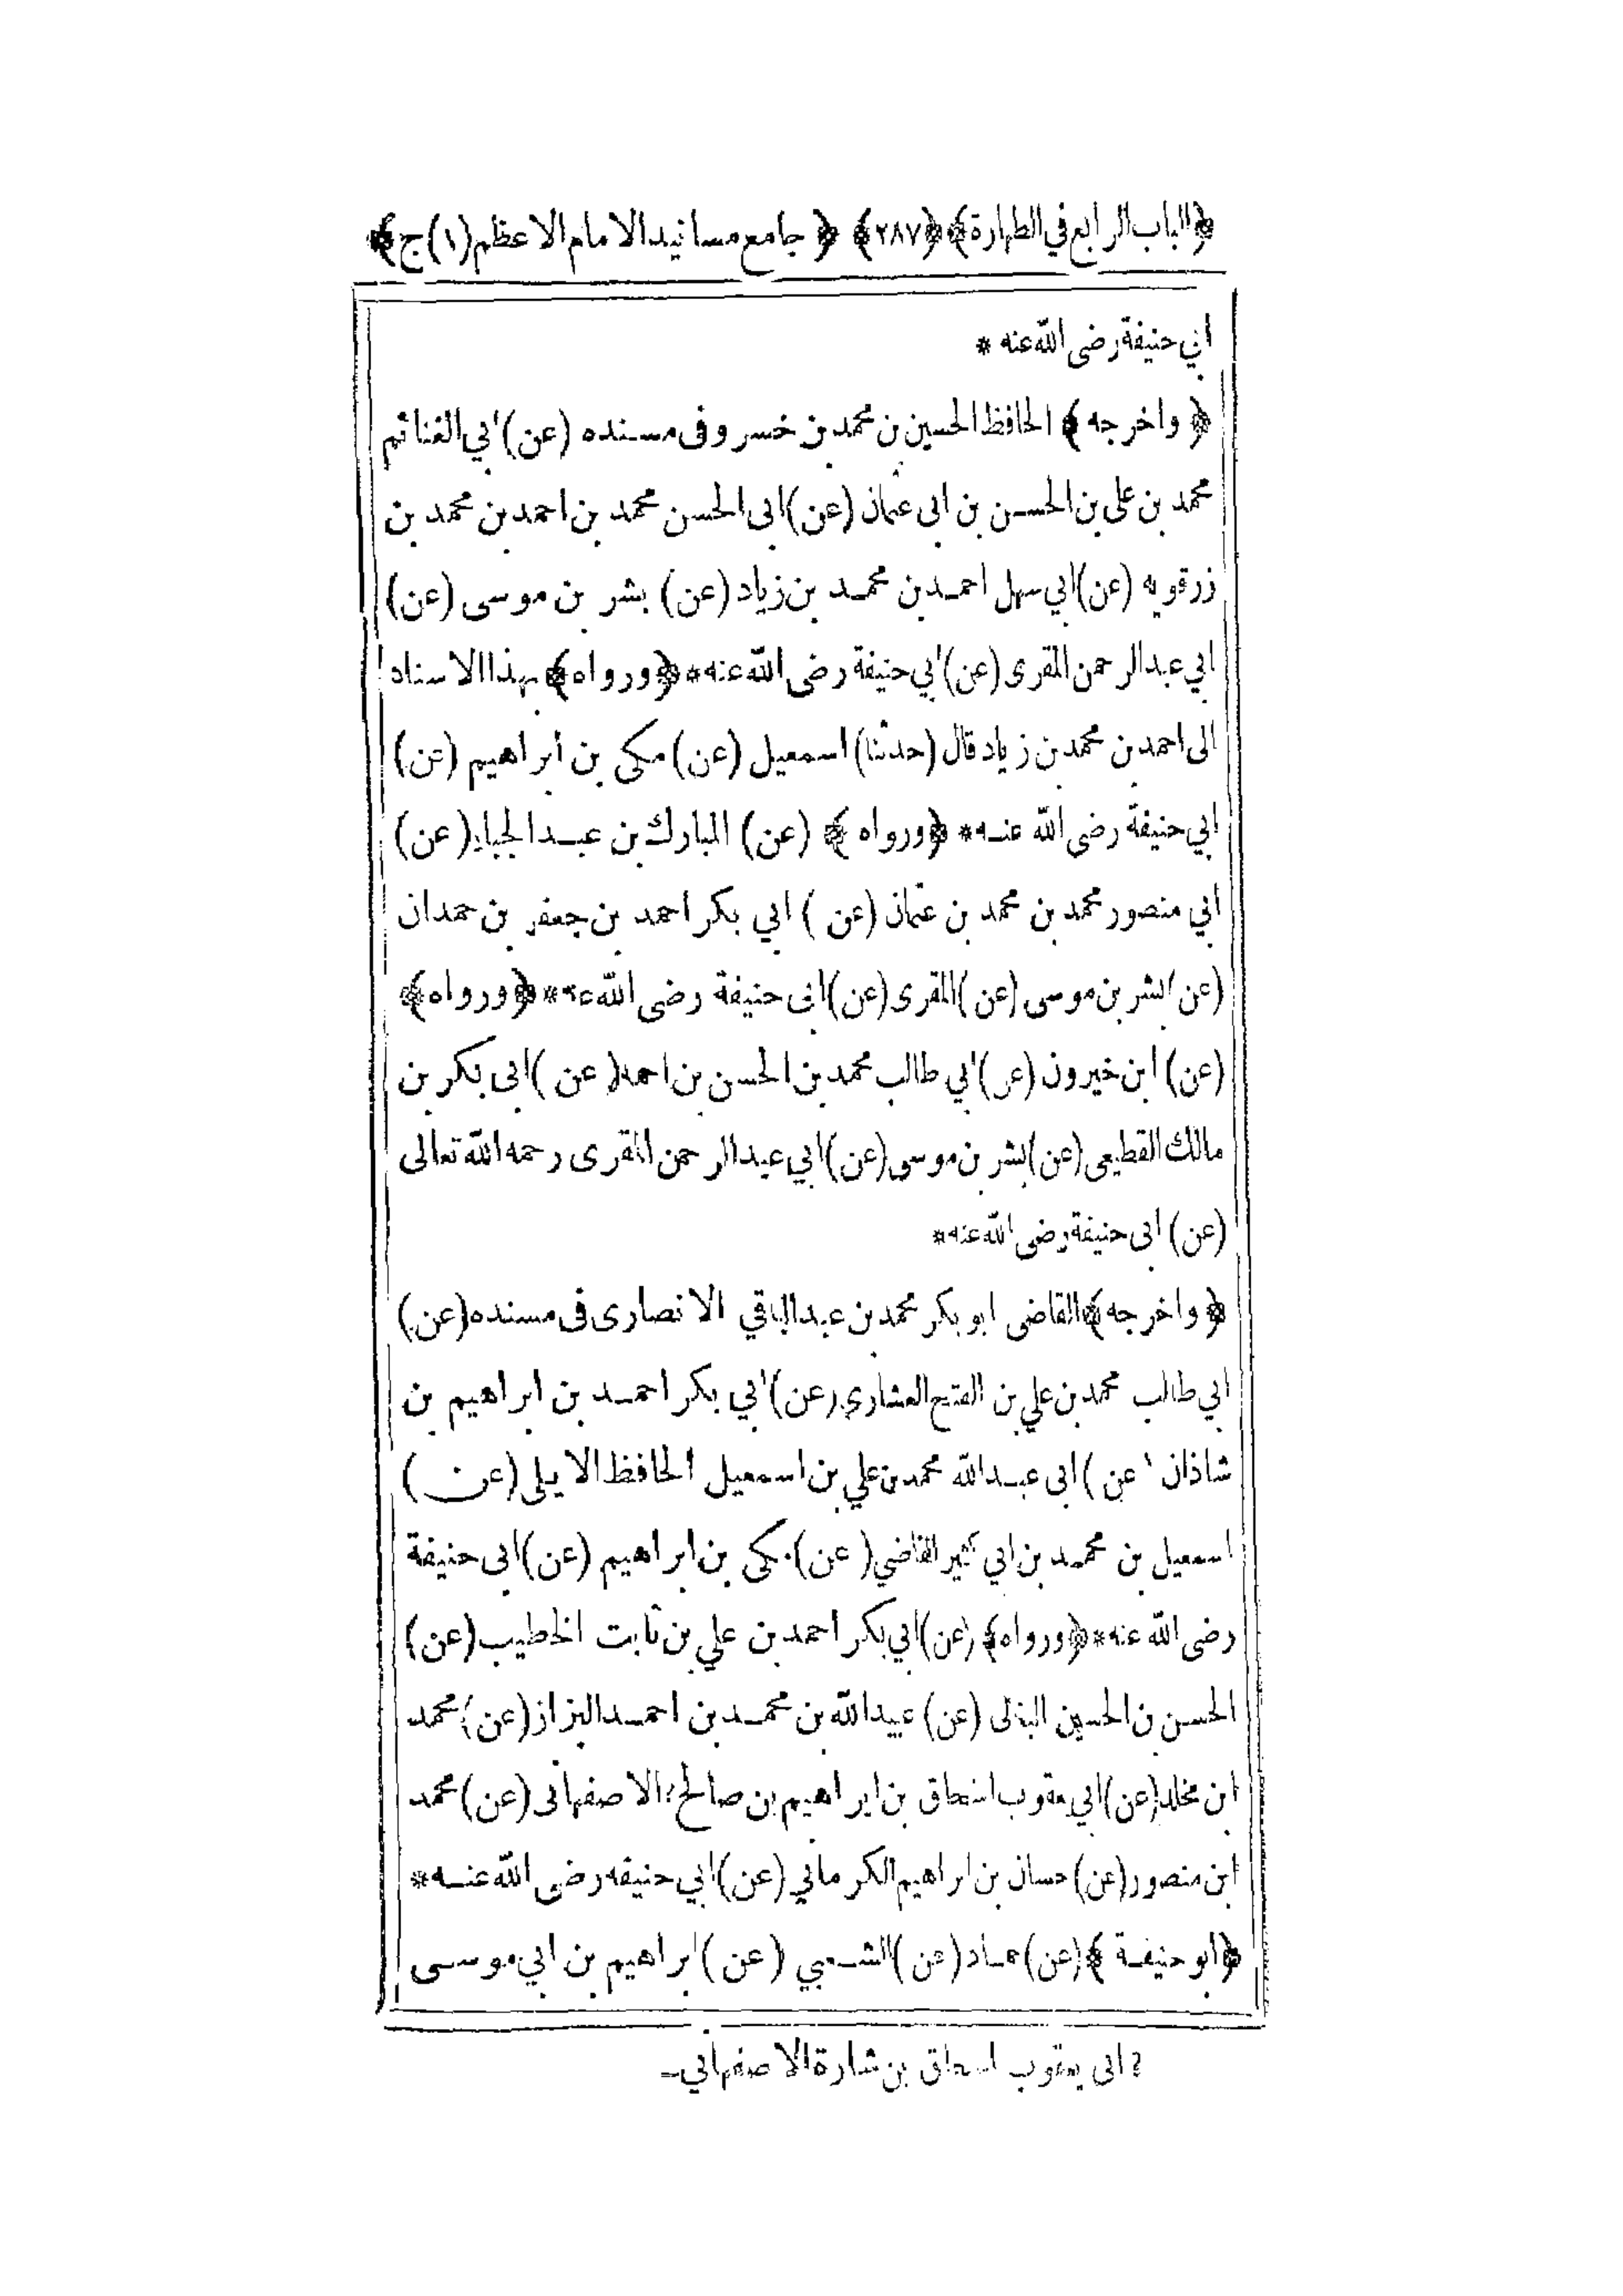 ﴿الباب الرابع في الطهارة﴾ ﴿٢٨٧﴾ ﴿ جامع مسانيد الامام الاعظم (١) ج﴾
ابي حنيفة رضى الله عنه *
﴿ واخرجه ﴾ الحافظ الحسين بن محمد بن خسرو فى مسنده (عن) ابي الغنائم
محمد بن على بن الحسن بن ابى عثمان (عن) ابى الحسن محمد بن احمد بن محمد بن
زرقويه (عن) ابي سهل احمد بن محمد بن زياد (عن) بشر بن موسى (عن)
ابي عبد الرحمن المقرى (عن) ابي حنيفة رضى الله عنه * ﴿ورواه﴾ بهذا الاسناد
الى احمد بن محمد بن زياد قال (حدثنا) اسمعيل (عن) مكى بن ابراهيم (عن)
ابي حنيفة رضى الله عنه * ﴿ورواه ﴾ (عن) المبارك بن عبد الجبار (عن)
ابي منصور محمد بن محمد بن عثمان (عن) ابي بكر احمد بن جعفر بن حمدان
(عن) بشر بن موسى (عن) المقرى (عن) ابى حنيفة رضى الله عنه * ﴿ورواه﴾
(عن) ابن خيرون (عن) ابي طالب محمد بن الحسن بن احمد (عن) ابى بكر بن
مالك القطيعى (عن) بشر بن موسى (عن) ابي عبد الرحمن المقرى رحمه الله تعالى
(عن) ابى حنيفة رضى الله عنه *
﴿ واخرجه ﴾ القاضى ابو بكر محمد بن عبد الباقي الانصارى فى مسنده (عن)
ابي طالب محمد بن علي بن الفتح العشاري (عن) ابي بكر احمد بن ابراهيم بن
شاذان (عن) ابى عبد الله محمد بن علي بن اسمعيل الحافظ الايلى (عن)
اسمعيل بن محمد بن ابي كثير القاضي (عن) مكى بن ابراهيم (عن) ابى حنيفة
رضى الله عنه * ﴿ورواه﴾ (عن) ابي بكر احمد بن علي بن ثابت الخطيب (عن)
الحسن بن الحسين (عن) عبيد الله بن محمد بن احمد البزاز (عن) محمد
ابن مخلد (عن) ابي يعقوب اسحاق بن ابراهيم بن صالح ٢ الاصفهانى (عن) محمد
ابن منصور (عن) حسان بن ابراهيم الكرماني (عن) ابي حنيفه رضى الله عنه *
﴿ابو حنيفة ﴾ (عن) حماد (عن) الشعبي (عن) ابراهيم بن ابي موسى
٢ ابى يعقوب اسحاق بن شارة الاصفهاني ـ